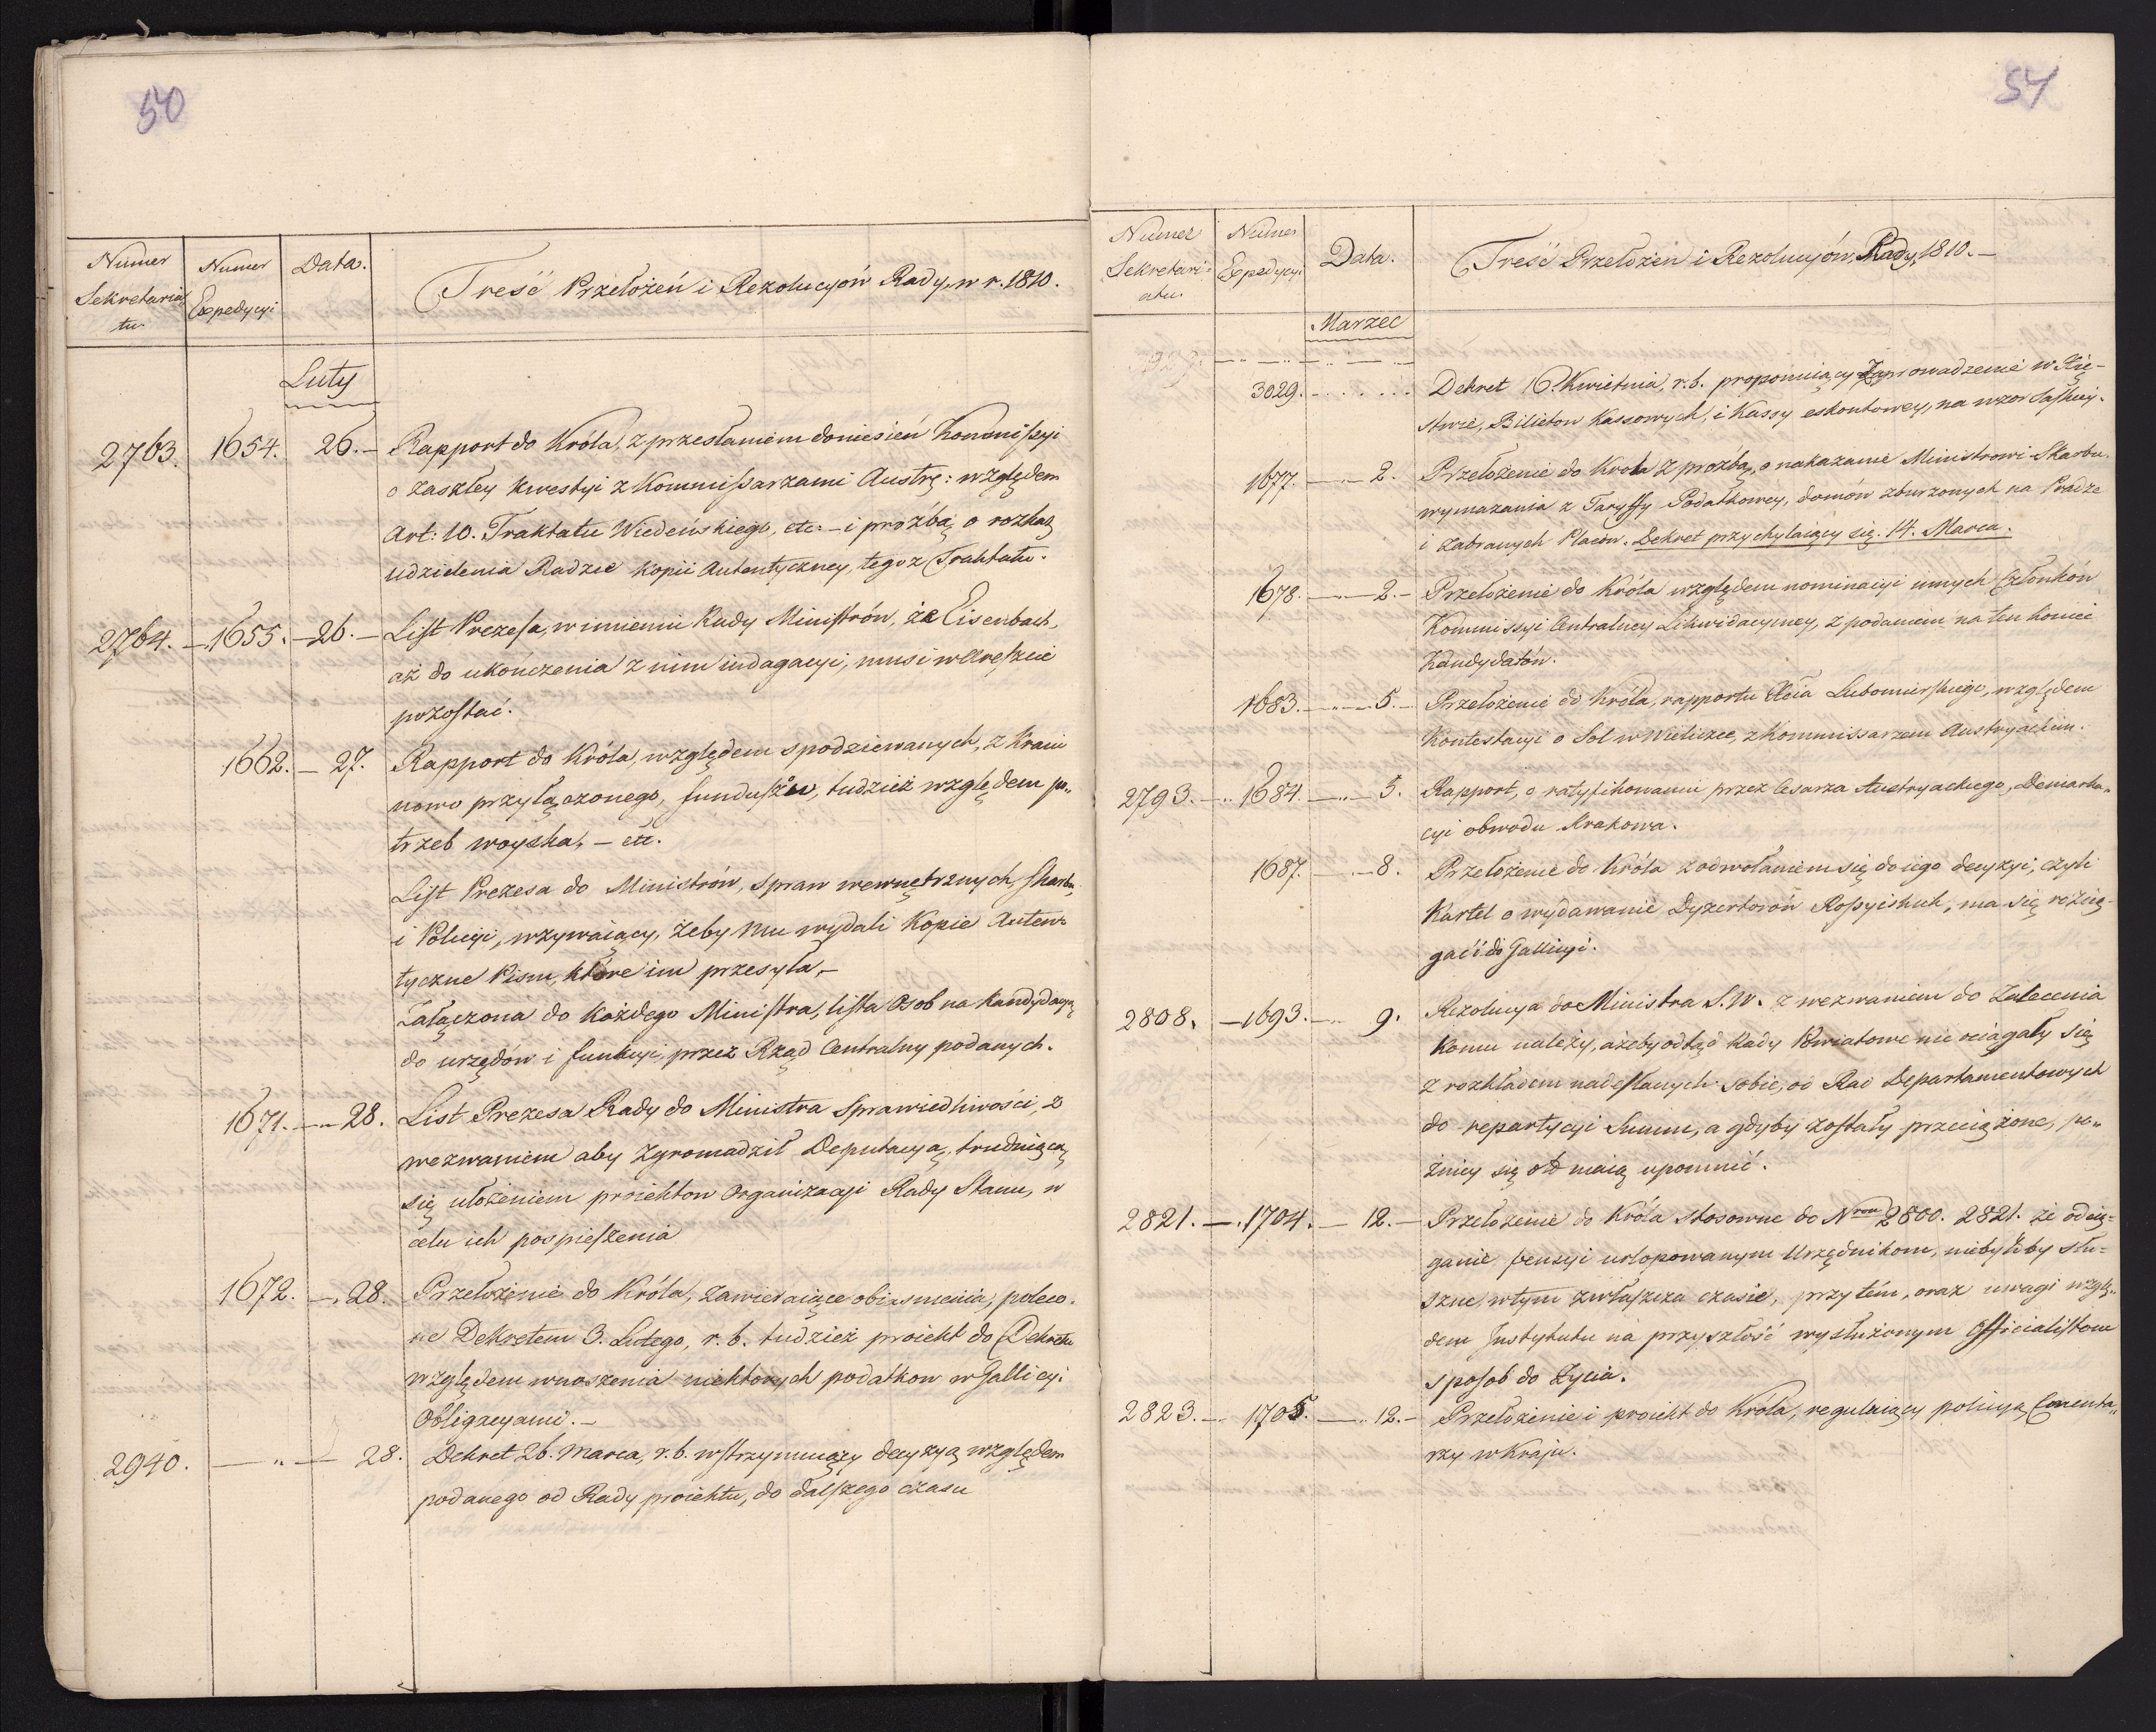 50
Numer Sekretaria tu
Numer Expedycyi
Data.
Treść Przełożeń i Rezolucyów Rady, w r. 1810.
Luty
2763. 1654. 26. – Rapport do Króla, z przesłaniem doniesień Kommissyi
o zaszłey kwestyi z Kommissarzami Austrę: względem
Art: 10. Traktatu Wiedeńskiego, etc: – i prozbą o rozkaz
udzielenia Radzie Kopii Autentyczney, tegoz Traktatu.
2764. – 1655. – 26. – List Prezesa, w imieniu Rady Ministrów, że Eisenbach,
aż do ukończenia z nim indagacyi, musi w Areszcie
pozostać.
1662. – 27. Rapport do Króla, względem spodziewanych, z Kraiu
nowo przyłączonego, funduszów, tudzież względem po„
trzeb woyska, – etc.
List Prezesa do Ministrów, spraw wewnętrznych, Skarbu,
i Policyi, wzywaiący, żeby mu wydali Kopie Auten„
tyczne Pism, które im przesyła, –
Załączona do Każdego Ministra, lista Osob na Kandydacyą
do urzędów i funkcyi, przez Rząd Centralny podanych.
1671. – „ – 28. List Prezesa Rady do Ministra Sprawiedliwości, z
wezwaniem aby Zgromadził Deputacyą, trudniącą
się ułożeniem proiektow Organizacyi Rady Stanu, w
celu ich pospieszenia
1672. – „ 28. Przełożenie do Króla, zawieraiące obiasnienia, poleco„
ne Dekretem 3. Lutego, r. b. tudzież proiekt do Dekretu
względem wnoszenia niektorych podatkow w Gallicyi
Obligacyami. –
2940. — „ — 28. Dekret 26. Marca, r. b. wstrzymuiący decyzyą względem
podanego od Rady proiektu, do dalszego czasu
51
Numer Sekretari= atu.
Numer Expedycyi
Data.
Treść Przełożeń i Rezolucyów, Rady, 1810. –
Marzec
3029. Dekret 16. Kwietnia, r. b. proponuiący Zaprowadzenie w Xię–
stwie, Biletow Kassowych, i Kassy eskontowey, na wzor Saskiey.
1677. – „ – 2. Przełożenie do Krola z prozbą, o nakazanie Ministrowi Skarbu.
wymazania z Taryffy Podatkowey, domów zburzonych na Pradze
i Zabranych Placów. Dekret przychylaiący się. 14. Marca.
1678. – „ – 2. – Przełożenie do Króla względem nominacyi innych Członków
Kommissyi Centralney Likwidacyiney, z podaniem na ten koniec
Kandydatów.
1683. – „ – 5. – Przełożenie do Króla, rapportu Xcia Lubomirskiego, względem
Kontestacyi o Sol w Wieliczce, z Kommissarzem Austryackim.
2793. – „ 1684. – „ – 5. Rapport, o ratyfikowaniu przez Cesarza Austryackiego, Demarka„
cyi obwodu Krakowa.
1687. – „ – 8. Przełożenie do Króla z odwołaniem się do iego decyzyi, czyli
Kartel o wydawanie Dyzertorów Rossyiskich, ma się rozcią–
gać i do Gallicyi.
2808. – 1693. – „ 9. Rezolucya do Ministra S. W. z wezwaniem do Zalecenia
Komu należy, ażeby odtąd Rady Powiatowe nie ociągały się
z rozkładem nadesłanych sobie, od Rad Departamentowych
do repartycyi Summ, a gdyby zostały przeciążone, po„
źniey się o to maią upomnić.
2821. – „ 1704. – 12. – Przełożenie do Króla stosowne do Nrow 2800. 2821. że odcią=
ganie pensyi urlopowanym Urzędnikom, nie byłoby słu=
szne, w tym zwłaszcza czasie, przytém, oraz uwagi wzglę„
dem Jnstytutu na przyszłość wysłużonym Officialistom
sposob do Życia.
2823. – „ 1705. – „ 12. – Przełożenie i proiekt do Króla, regulaiący policyą Cmenta„
rzy w Kraju.